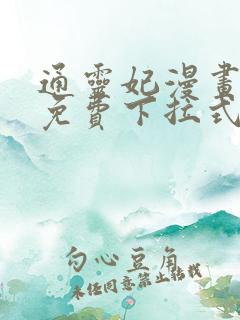 通靈妃漫畫
免費下拉式
勾心豆角
未经同意禁止转载